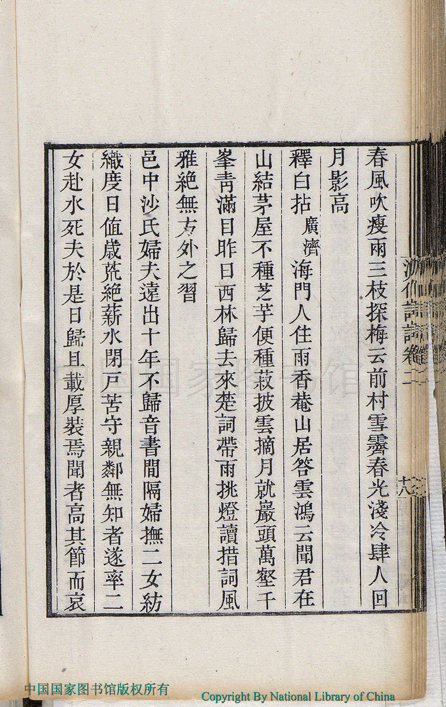 春風吹瘦雨三枝探梅云前村雪霽春光淺冷肆人回
月影高
釋白拈廣濟海門人住雨香菴山居答雲鴻云聞君在
山結茅屋不種芝芋便種菽披雲摘月就巖頭萬壑千
峯靑滿目昨日西林歸去來楚詞帶雨挑燈讀措詞風
雅絕無方外之習
邑中沙氏婦夫遠出十年不歸音書間隔婦撫二女紡
織度日値歲荒絕薪水閉戸苦守親鄰無知者遂率二
女赴水死夫於是日歸且載厚裝焉聞者高其節而哀
詩話卷二
十八
中国国家图书馆
中国国家图书馆版权所有
Copyright By National Library of China